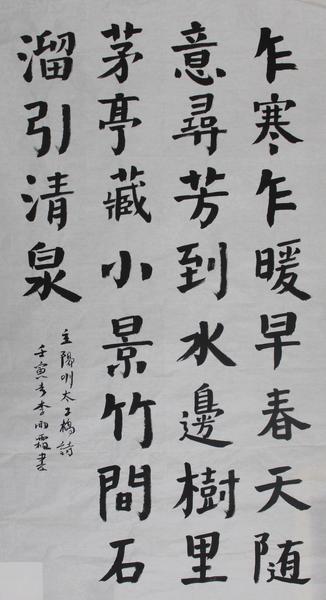 乍寒乍暖早春天随
意尋芳到水邊樹里
茅亭藏小景竹間石
溜引清泉
王陽明太子橋詩
壬寅李雨霞書